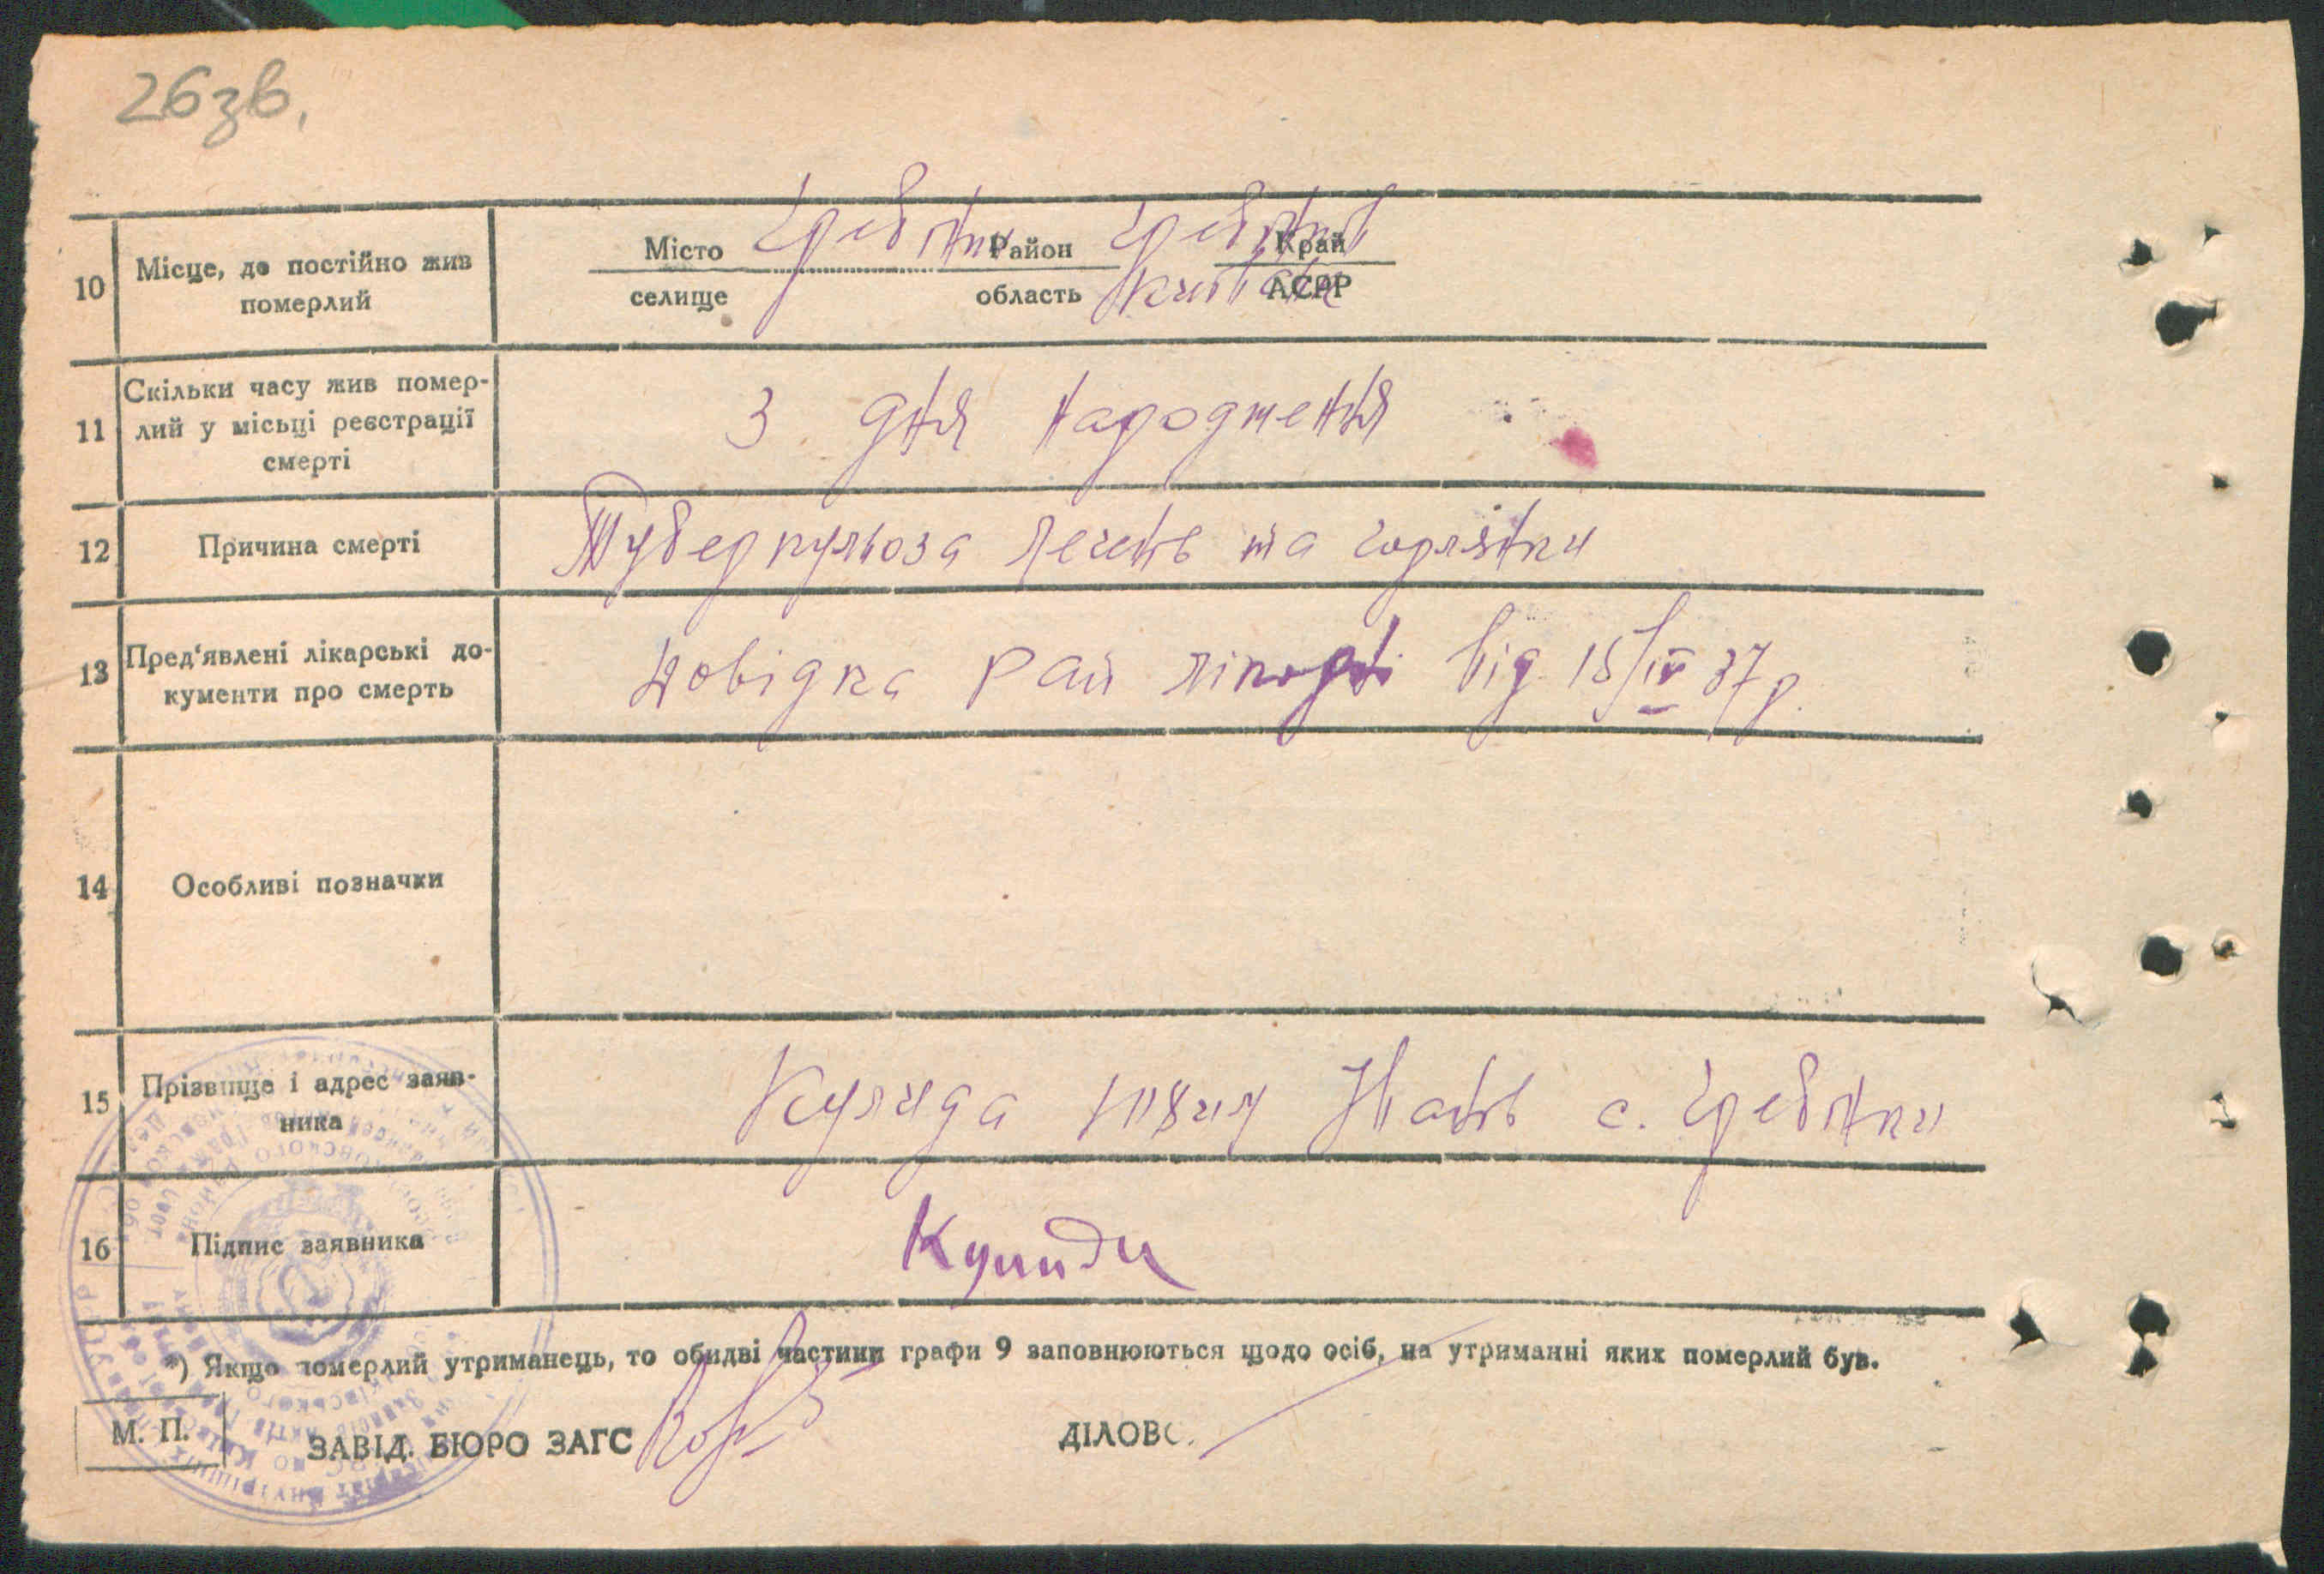 26зв.
10 Місце, де постійно жив померлий
Місто Гребінки Район Гребінків Край
селище область Київська АСРР
11 Скільки часу жив помер-
лий у місьці реєстрації
смерті
З дня народження
12 Причина смерті
Туберкульоза легень та горлянки
13 Пред'явлені лікарські до-
кументи про смерть
Довідка Рай від 15/IV 37 р.
14 Особливі позначки
15 Прізвище і адрес заяв-
ника
Кулида с. Гребінки
16 Підпис заявника
Кулида
*) Якщо померлий утриманець, то обидві частини графи 9 заповнюються щодо осіб, на утриманні яких померлий був.
М. П. ЗАВІД. БЮРО ЗАГС ДІЛОВ